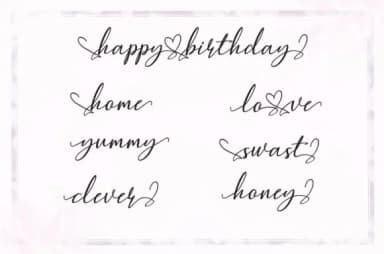 happy birthday
home love
yummy swast
clever honey